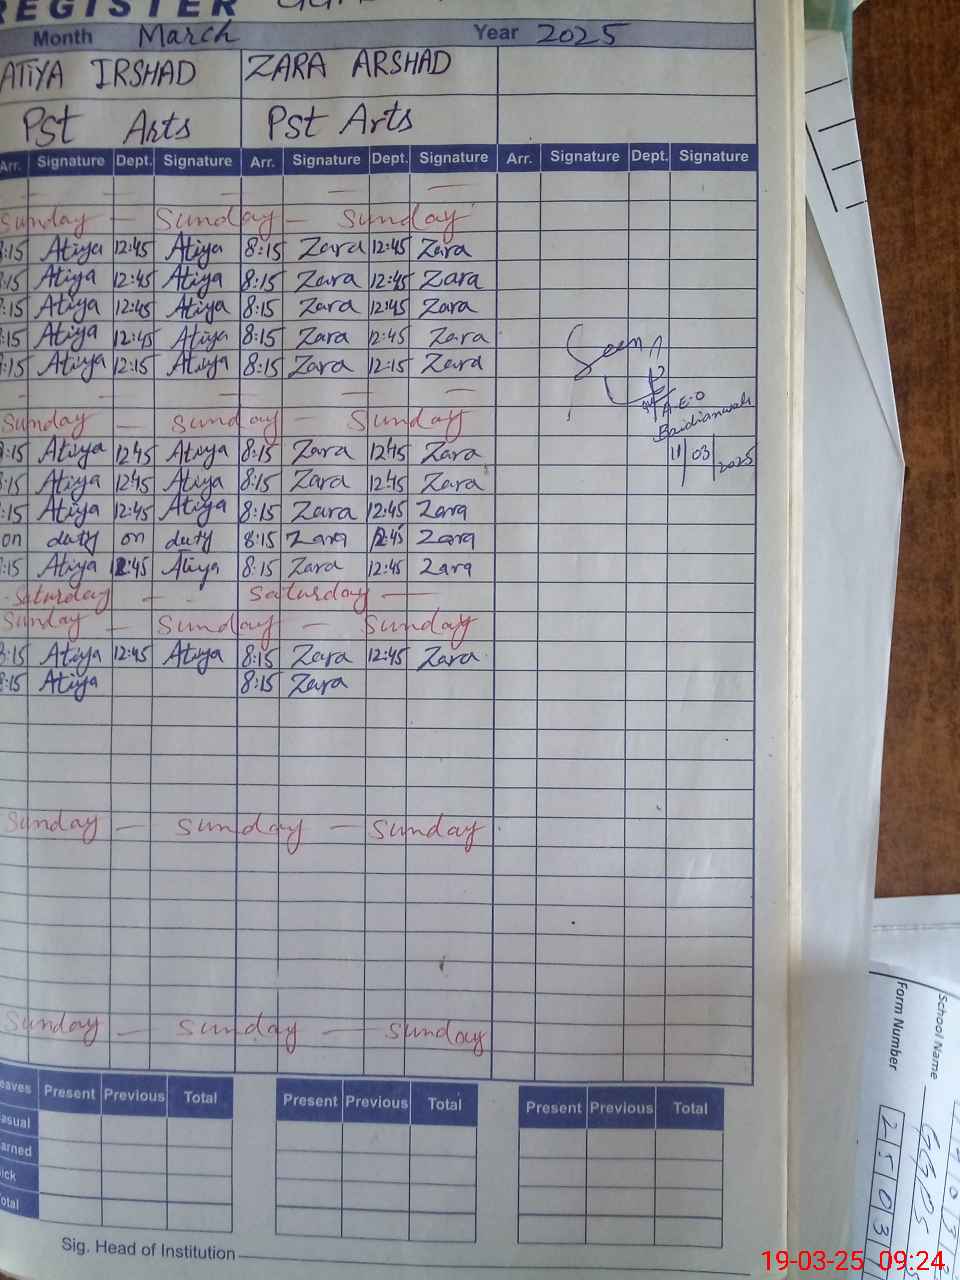 REGISTER
Month March Year 2025
ATIYA IRSHAD ZARA ARSHAD
Pst Arts Pst Arts
Arr. Signature Dept. Signature Arr. Signature Dept. Signature Arr. Signature Dept. Signature
— — — — —
Sunday — Sunday — Sunday
8:15 Atiya 12:45 Atiya 8:15 Zara 12:45 Zara
8:15 Atiya 12:45 Atiya 8:15 Zara 12:45 Zara
8:15 Atiya 12:45 Atiya 8:15 Zara 12:45 Zara
8:15 Atiya 12:45 Atiya 8:15 Zara 12:45 Zara
8:15 Atiya 12:15 Atiya 8:15 Zara 12:15 Zara
Seen
— — — — —
Sunday — Sunday — Sunday
A.E.O
8:15 Atiya 1245 Atiya 8:15 Zara 1245 Zara
11/03/2025
8:15 Atiya 1245 Atiya 8:15 Zara 1245 Zara
8:15 Atiya 12:45 Atiya 8:15 Zara 12:45 Zara
on duty on duty 8:15 Zara 12:45 Zara
8:15 Atiya 12:45 Atiya 8:15 Zara 12:45 Zara
Saturday — - Saturday —
Sunday — Sunday — Sunday
8:15 Atiya 12:45 Atiya 8:15 Zara 12:45 Zara
8:15 Atiya 8:15 Zara
Sunday — Sunday — Sunday
Sunday — Sunday — Sunday
Leaves Present Previous Total Present Previous Total Present Previous Total
Casual
Earned
Sick
Total
Sig. Head of Institution
School Name GGPS
Form Number 2503
19-03-25 09:24